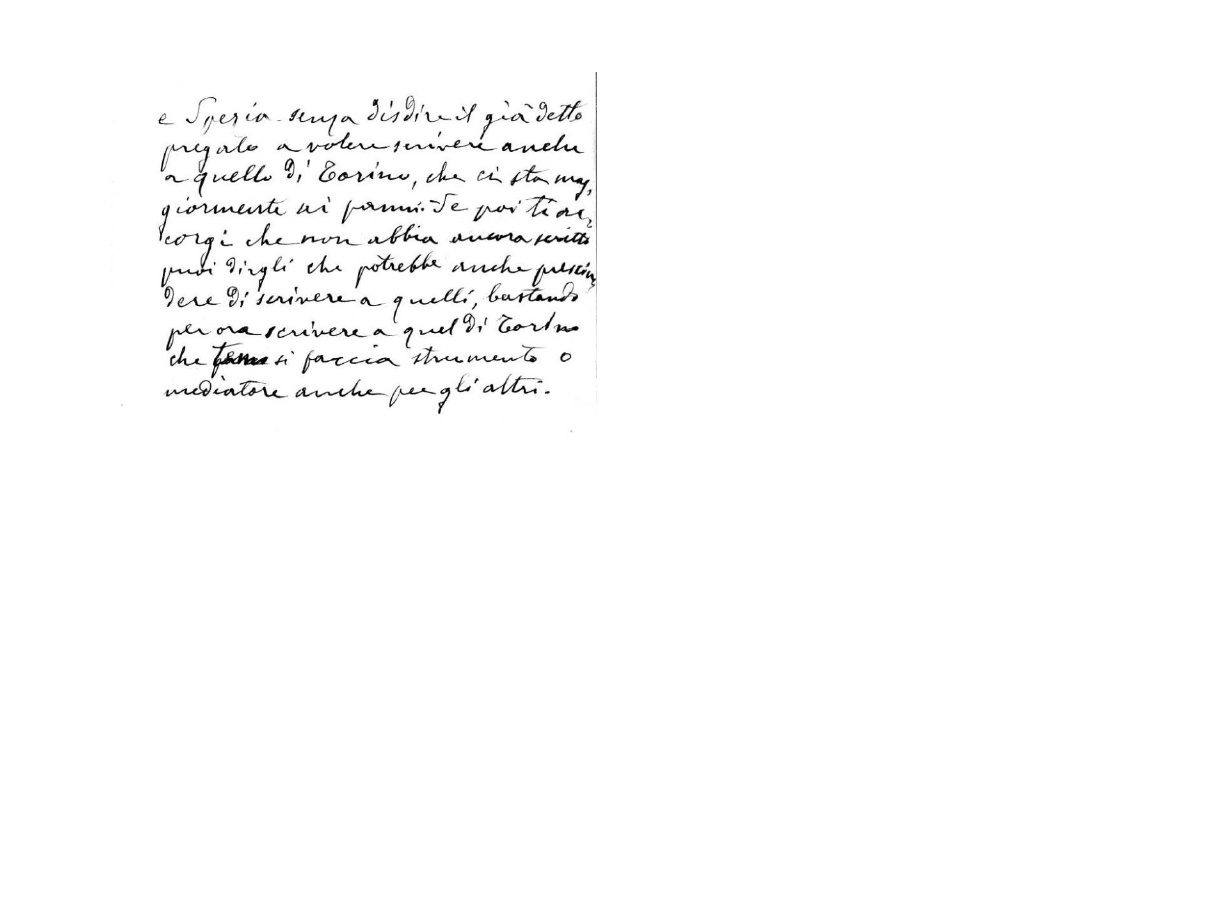 e Spezia senza disdire il già detto
pregalo a volere scrivere anche
a quello di Torino, che ci sta mag,
giormente ai panni. Se poi ti ac,
corgi che non abbia ancora scritto
puoi dirgli che potrebbe anche prescin,
dere di scrivere a quelli, bastando
per ora scrivere a quel di Torino
che si faccia strumento o
mediatore anche per gli altri.